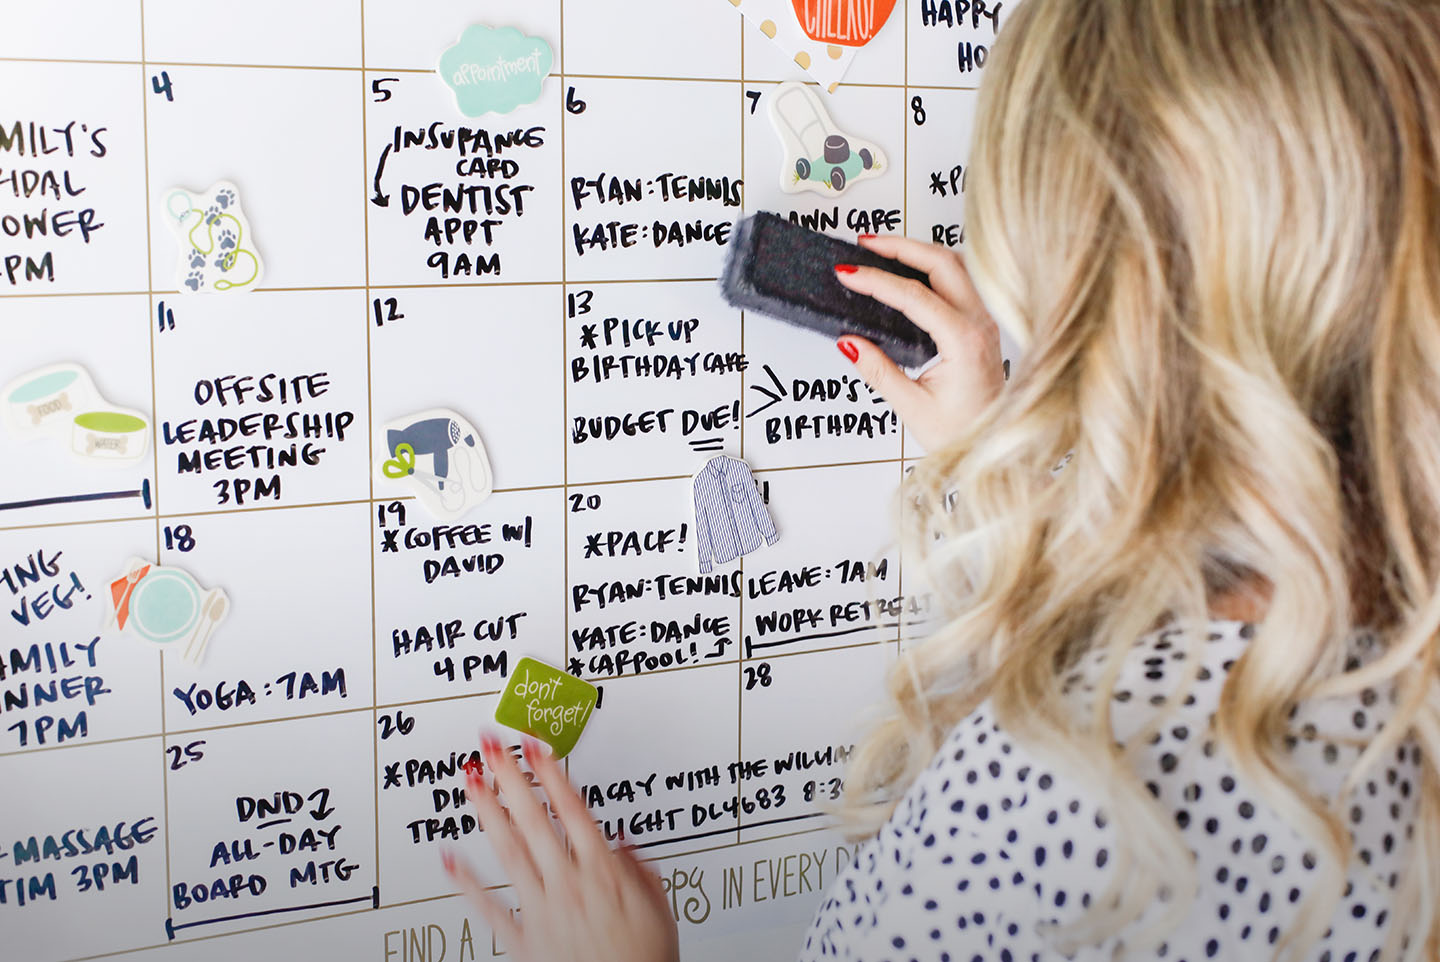 CHEERS!
HAPPY
4
5
appointment
INSURANCE
CARD
DENTIST
APPT
9AM
6
RYAN: TENNIS
KATE: DANCE
7
LAWN CARE
8
11
OFFSITE
LEADERSHIP
MEETING
3PM
12
13
*PICK UP
BIRTHDAY CAKE
BUDGET DUE!
DAD'S
BIRTHDAY!
FOOD
WATER
VEG!
7PM
18
YOGA: 7AM
19
*COFFEE W/
DAVID
HAIR CUT
4 PM
20
*PACK!
RYAN: TENNIS
KATE: DANCE
*CARPOOL!
LEAVE: 7AM
WORK RETREAT
don't
forget!
MASSAGE
3PM
25
DND
ALL-DAY
BOARD MTG
26
28
WITH THE
FLIGHT DL4683
FIND A
IN EVERY